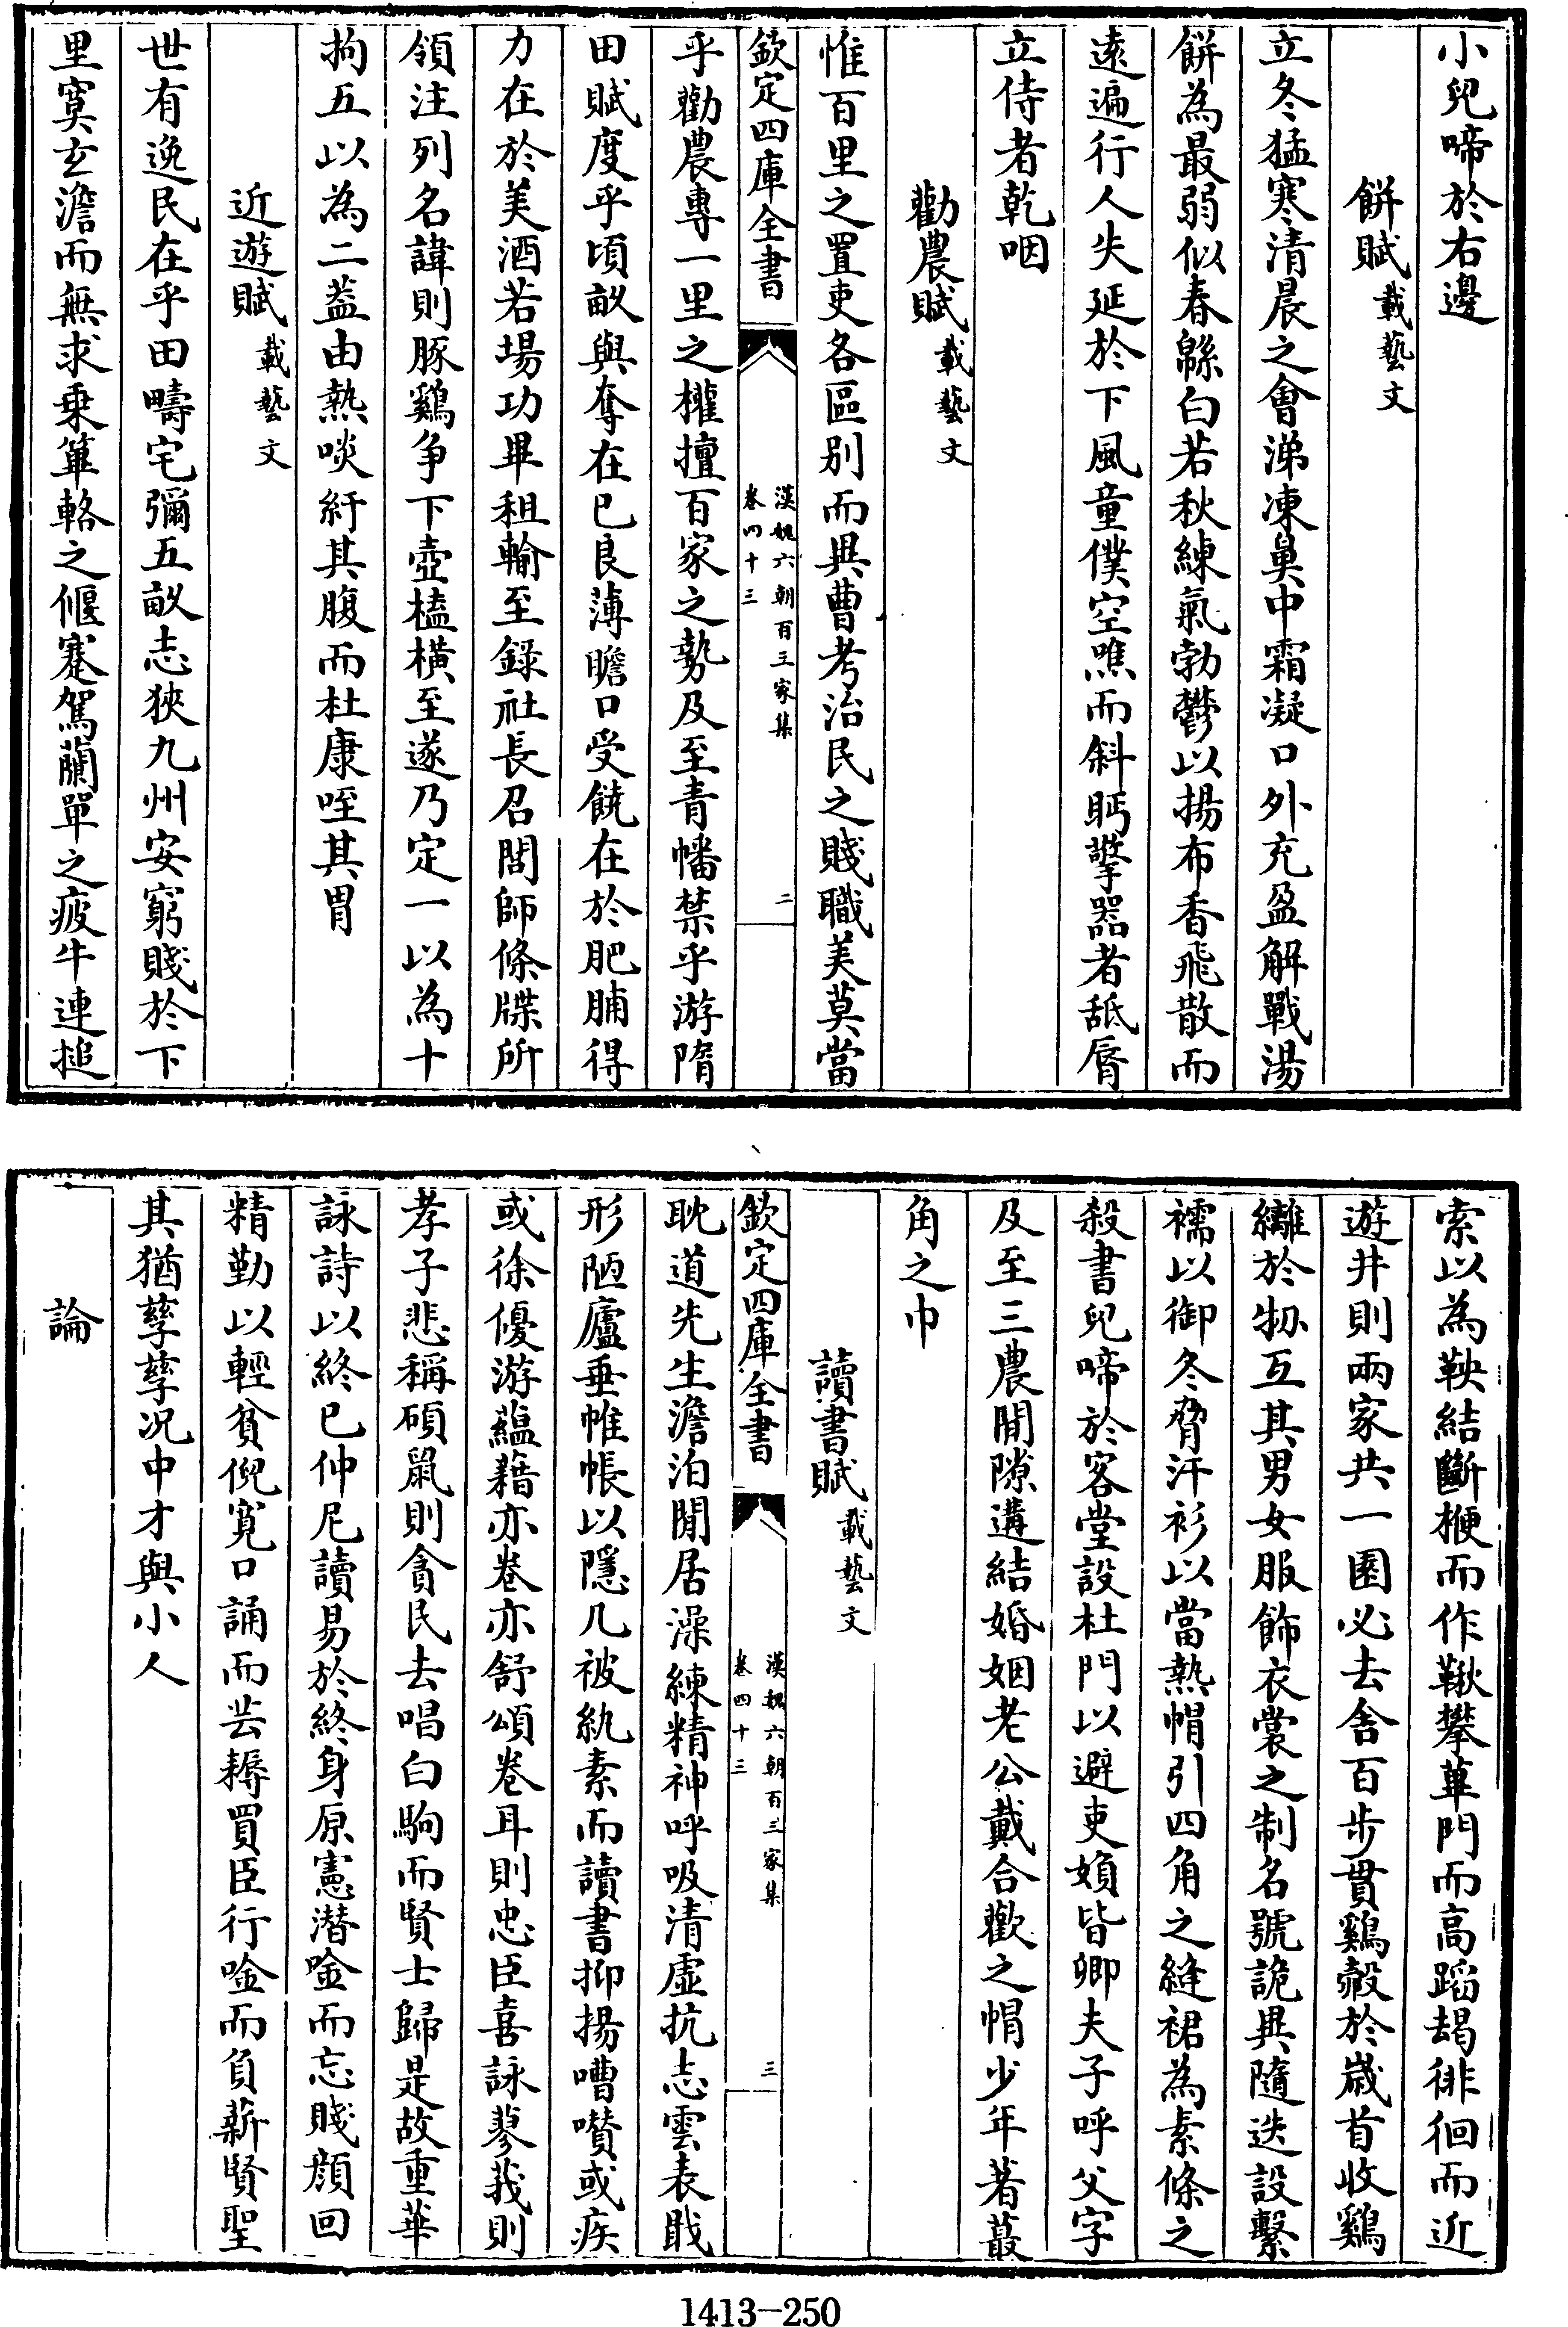 小兒啼於右邊
餅賦載藝文
立冬猛寒清晨之會涕凍鼻中霜凝口外充盈解戰湯
餅為最弱似春緜白若秋練氣勃鬱以揚布香飛散而
遠遍行人失延於下風童僕空噍而斜眄擎器者䑛脣
立侍者乾咽
勸農賦載藝文
惟百里之置吏各區别而異曹考治民之賤職美莫當
欽定四庫全書
漢魏六朝百三家集
卷四十三
二
乎勸農專一里之權擅百家之勢及至青幡禁乎游隋
田賦度乎頃畝與奪在已良薄瞻口受饒在於肥脯得
力在於美酒若場功畢租輸至錄社長召閭師條牒所
領注列名諱則豚鷄爭下壺榼橫至遂乃定一以為十
拘五以為二葢由熱啖紆其腹而杜康咥其胃
近遊賦載藝文
世有逸民在乎田疇宅彌五畝志狹九州安窮賤於下
里寞玄澹而無求乗篳輅之偃蹇駕蘭單之疲牛連搥
索以為鞅結斷梗而作鞦攀篳門而高蹈朅徘徊而近
遊井則兩家共一園必去舍百步貫鷄觳於嵗首收鷄
纚於牣互其男女服飾衣裳之制名號詭異隨迭設繫
襦以御冬脅汗衫以當熱帽引四角之縫裙為素條之
殺書兒啼於客堂設杜門以避吏媍皆卿夫子呼父字
及至三農間隙遘結婚姻老公戴合歡之帽少年著蕞
角之巾
讀書賦載藝文
欽定四庫全書
漢魏六朝百三家集
卷四十三
三
耽道先生澹泊閒居澡練精神呼吸清虛抗志雲表戢
形陋廬垂帷帳以隱几被紈素而讀書抑揚嘈囋或疾
或徐優游藴藉亦卷亦舒頌卷耳則忠臣喜詠蓼莪則
孝子悲稱碩鼠則貪民去唱白駒而賢士歸是故重華
詠詩以終已仲尼讀易於終身原憲潛唫而忘賤顔回
精勤以輕貧倪寛口誦而芸耨買臣行唫而負薪賢聖
其猶孳孳况中才與小人
論
1413—250